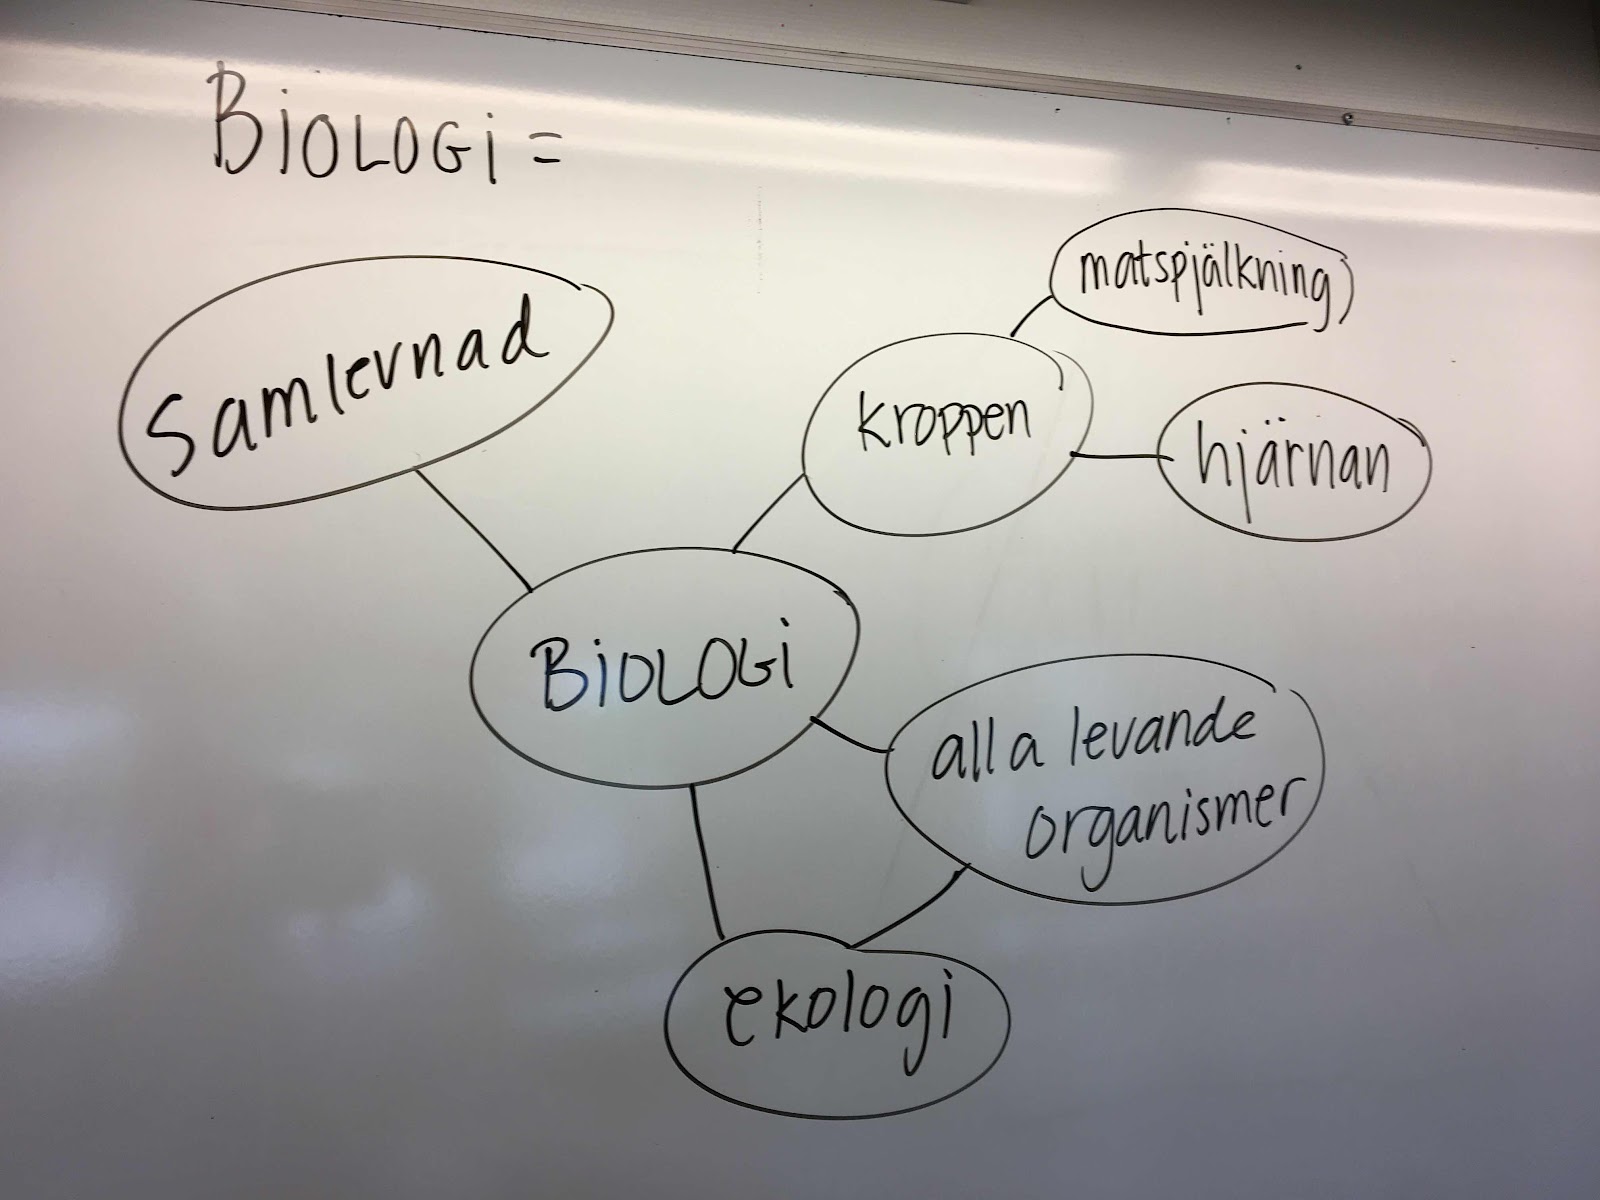 BiOLOGi =
samlevnad
matspjälkning
kroppen
hjärnan
BiOLOGi
alla levande
organismer
ekologi